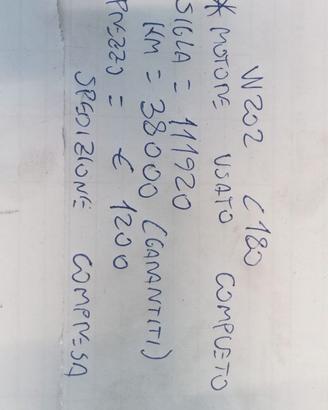 W202 C180
* MOTORE USATO COMPLETO
SIGLA = 111920
KM = 38000 (GARANTITI)
PREZZO = € 1200
SPEDIZIONE COMPRESA